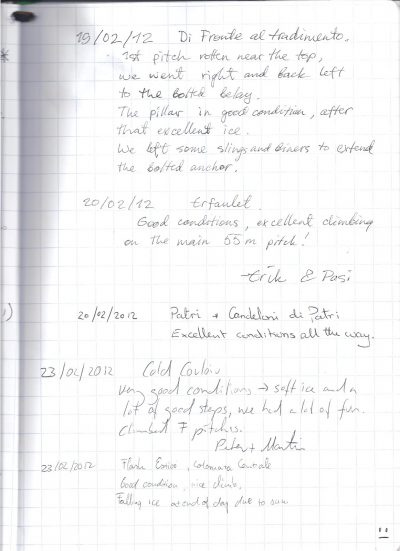 19/02/12 Di Fronte al tradimento.
* 1st pitch rotten near the top,
we went right and back left
to the bolted belay.
The pillar in good condition, after
that excellent ice.
We left some slings and biners to extend
the bolted anchor.
20/02/12 Erfaulet.
Good conditions, excellent climbing
on the main 55 m pitch!
Erik & Pasi
20/02/2012 Patri + Candeloni di Patri
Excellent conditions all the way.
23/02/2012 Cold Couloir
Very good conditions → soft ice and a
lot of good steps, we had a lot of fun.
Climbed 7 pitches.
Peter + Martin
23/02/2012 Flash Estivo, colonnara Centrale
Good condition, nice climb,
Falling ice at end of day due to sun.